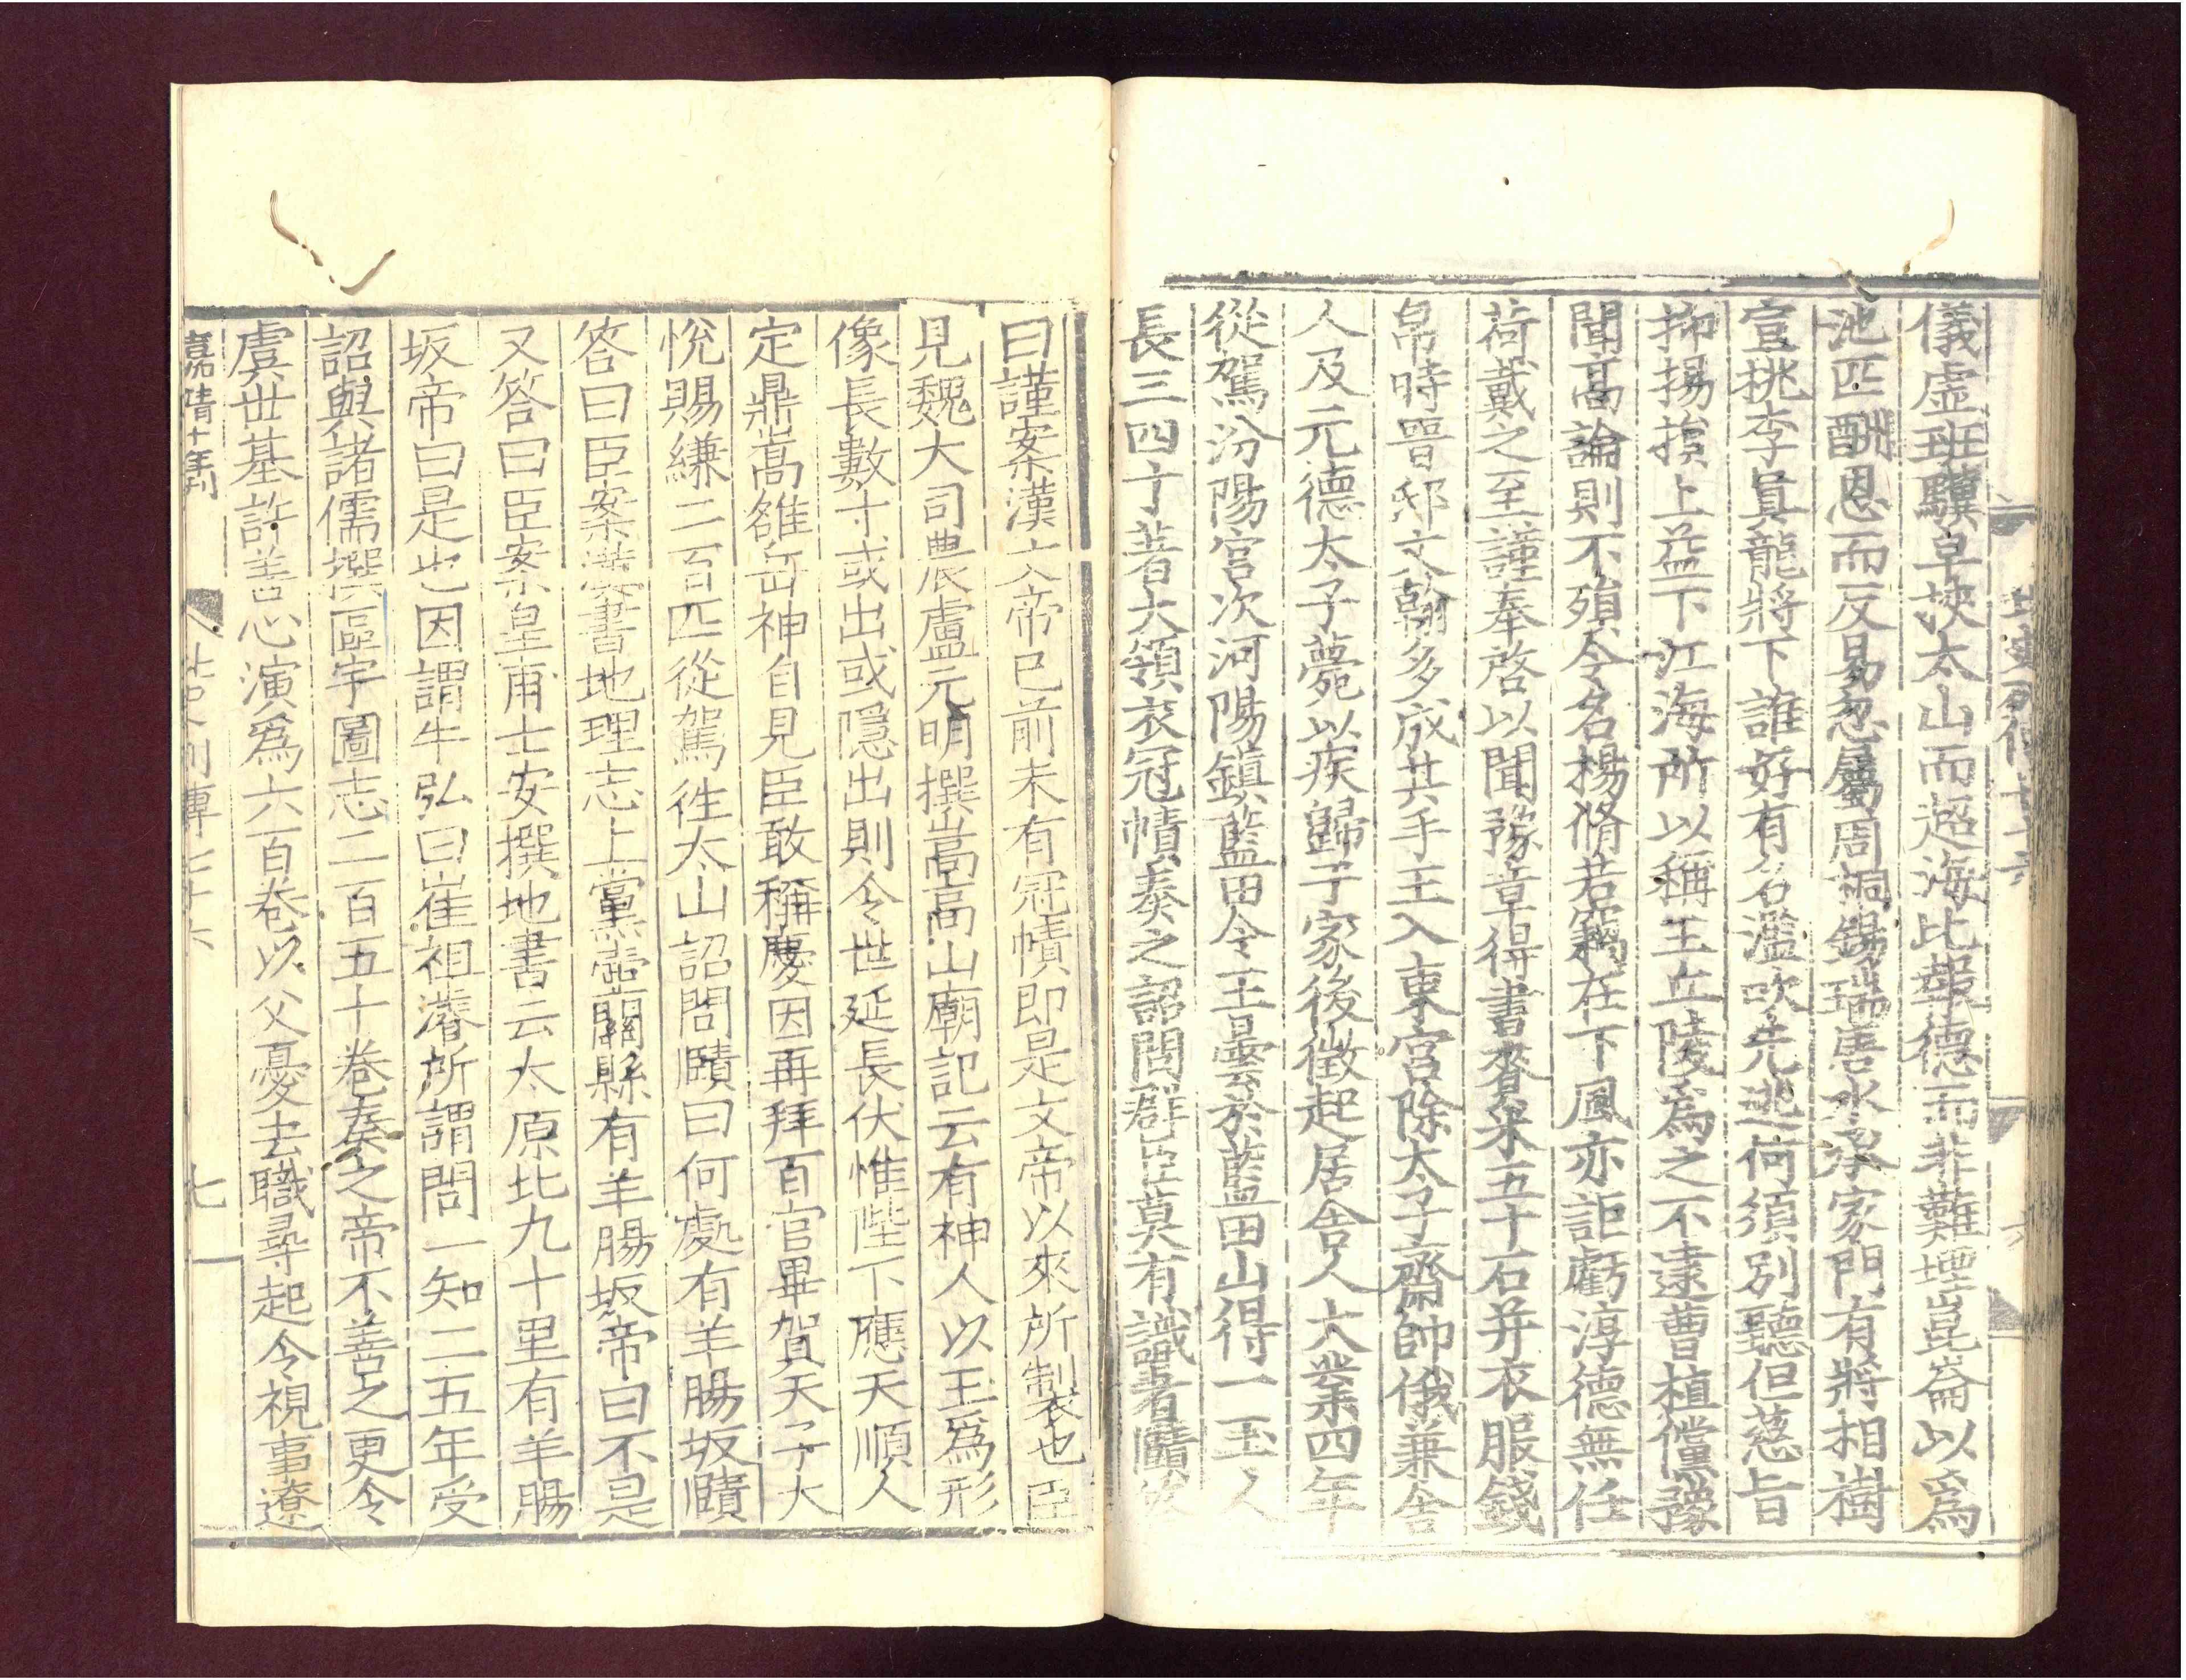 儀虛班驥皁挾太山而超海比報德而非難堙崑崙以爲
池匹酬恩而反易忽屬周桐錫瑞唐水承家門有將相樹
宜桃李眞龍將下誰好有名濫吹先逃何須別聽但慈旨
抑揚損上益下江海所以稱王丘陵爲之不逮曹植儻豫
聞高論則不殞令名楊脩若竊在下風亦詎虧淳德無任
荷戴之至謹奉啓以聞豫章得書賚米五十石并衣服錢
帛時晉邸文翰多成其手王入東宮除太子齋帥俄兼舍
人及元德太子薨以疾歸于家後徵起居舍人大業四年
從駕汾陽宮次河陽鎮藍田令王曇於藍田山得一玉人
長三四寸著大領衣冠幘奏之詔問群臣莫有識者賾
曰謹案漢文帝已前未有冠幘即是文帝以來所制衣也臣
見魏大司農盧元明撰嵩高山廟記云有神人以玉爲形
像長數寸或出或隱出則令世延長伏惟陛下應天順人
定鼎嵩雒岳神自見臣敢稱慶因再拜百官畢賀天子大
悅賜縑二百匹從駕往太山詔問賾曰何處有羊腸坂賾
答曰臣案漢書地理志上黨壺關縣有羊腸坂帝曰不是
又答曰臣案皇甫士安撰地書云太原北九十里有羊腸
坂帝曰是也因謂牛弘曰崔祖濬所謂問一知二五年受
詔與諸儒撰區宇圖志二百五十卷奏之帝不善之更令
虞世基許善心演爲六百卷以父憂去職尋起令視事遼
嘉靖十年刊 北史列傳七十六 七